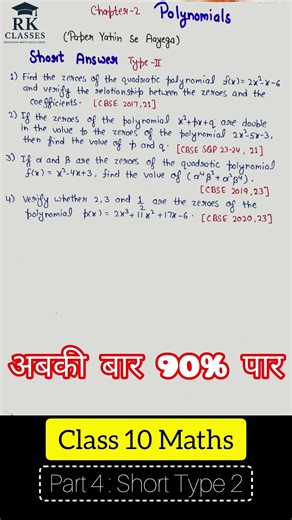 RK
CLASSES
Chapter-2 Polynomials
(Paper Yahin Se Aayega)
Short Answer Type-II
1) Find the zeroes of the quadratic polynomial f(x)= 2x²-x-6
and verify the relationship between the zeroes and the
coefficients. [CBSE 2017,21]
2) If the zeroes of the polynomial x²+px+q are double
in the value to the zeroes of the polynomial 2x²-5x-3,
then find the value of p and q. [CBSE SQP 23-24, 21]
3) If α and β are the zeroes of the quadratic polynomial
f(x) = x²-4x+3, find the value of (α⁴β²+α²β⁴).
[CBSE 2019,23]
4) Verify whether 2,3 and 1/2 are the zeroes of the
polynomial p(x) = 2x³-11x²+17x-6. [CBSE 2020,23]
अबकी बार 90% पार
Class 10 Maths
Part 4 : Short Type 2